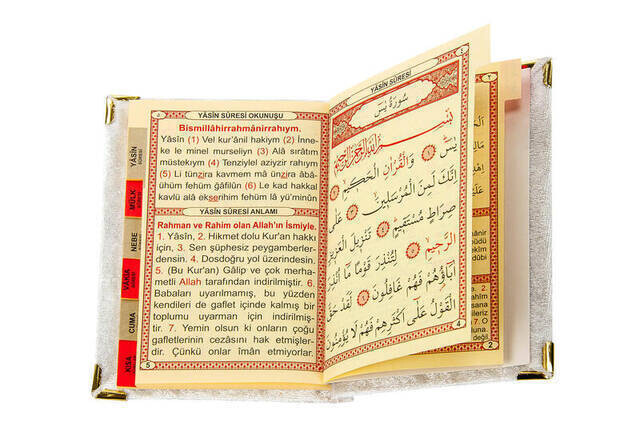 YÂSİN
SÛRESİ
MÜLK
NEBE
VAKIA
CUMA
KISA
٥
YÂSİN SÛRESİ OKUNUŞU
Bismillâhirrahmânirrahıym.
Yâsîn (1) Vel kur'ânil hakiym (2) İnne-
ke le minel murseliyn (3) Alâ sıratım
müstekıym (4) Tenziylel aziyzir rahıym
(5) Li tünzira kavmem mâ ünzira âbâ-
ühüm fehüm ğâfilûn (6) Le kad hakkal
kavlü alâ ekserihim fehüm lâ yü'minûn
YÂSİN SÛRESİ ANLAMI
Rahman ve Rahim olan Allah'ın İsmiyle.
1. Yâsîn, 2. Hikmet dolu Kur'an hakkı
için, 3. Sen şüphesiz peygamberler-
densin. 4. Dosdoğru yol üzerindesin.
5. (Bu Kur'an) Gâlip ve çok merha-
metli Allah tarafından indirilmiştir. 6.
Babaları uyarılmamış, bu yüzden
kendileri de gaflet içinde kalmış bir
toplumu uyarman için indirilmiş-
tir. 7. Yemin olsun ki onların çoğu
gafletlerinin cezasını hak etmişler-
dir. Çünkü onlar îmân etmiyorlar.
5
٤
YÂSİN SÛRESİ
سُورَةُ يٰسٓ
بِسْمِ اللّٰهِ الرَّحْمٰنِ الرَّحِيمِ
يٰسٓ ﴿١﴾ وَالْقُرْاٰنِ الْحَكِيمِ ﴿٢﴾
اِنَّكَ لَمِنَ الْمُرْسَلِينَ ﴿٣﴾ عَلٰى
صِرَاطٍ مُسْتَقِيمٍ ﴿٤﴾ تَنْزِيلَ الْعَزِيزِ
الرَّحِيمِ ﴿٥﴾ لِتُنْذِرَ قَوْمًا مَٓا اُنْذِرَ
اٰبَٓاؤُهُمْ فَهُمْ غَافِلُونَ ﴿٦﴾ لَقَدْ حَقَّ
الْقَوْلُ عَلٰٓى اَكْثَرِهِمْ فَهُمْ لَا يُؤْمِنُونَ
4
٢
2